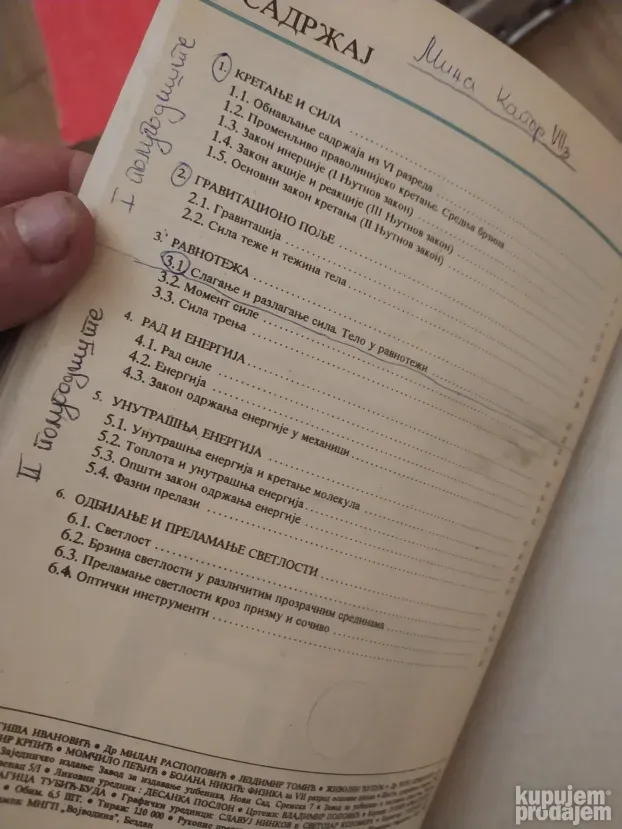 САДРЖАЈ
Мина Капор VII₃
I полугодиште
1. КРЕТАЊЕ И СИЛА
1.1. Обнављање садржаја из VI разреда
1.2. Променљиво праволинијско кретање. Средња брзина
1.3. Закон инерције (I Њутнов закон)
1.4. Закон акције и реакције (III Њутнов закон)
1.5. Основни закон кретања (II Њутнов закон)
2. ГРАВИТАЦИОНО ПОЉЕ
2.1. Гравитација
2.2. Сила теже и тежина тела
3. РАВНОТЕЖА
3.1 Слагање и разлагање сила. Тело у равнотежи
3.2. Момент силе
3.3. Сила трења
II полугодиште
4. РАД И ЕНЕРГИЈА
4.1. Рад силе
4.2. Енергија
4.3. Закон одржања енергије у механици
5. УНУТРАШЊА ЕНЕРГИЈА
5.1. Унутрашња енергија и кретање молекула
5.2. Топлота и унутрашња енергија
5.3. Општи закон одржања енергије
5.4. Фазни прелази
6. ОДБИЈАЊЕ И ПРЕЛАМАЊЕ СВЕТЛОСТИ
6.1. Светлост
6.2. Брзина светлости у различитим прозрачним срединама
6.3. Преламање светлости кроз призму и сочиво
6.4. Оптички инструменти
ИВАНОВИЋ • Др МИЛАН РАСПОПОВИЋ •
КРПИЋ • МОМЧИЛО ПЕЂИЋ • БОЈАНА НИКИЋ: ФИЗИКА за VII разред
Заједничко издање: Завод за издавање уџбеника, Нови Сад,
Ликовни уредник: ДЕСАНКА ПОСЛОН • Цртежи: ВЛАДИМИР
ТУБИЋ-БУДА • Графички уредници: СЛАВУЈ НИНКОВ и СВЕТОЗАР
• Обим: 6,5 ШТ. • Тираж: 120 000 • Рукопис
МНГП „Војводина", Бездан
kupujem
prodajem